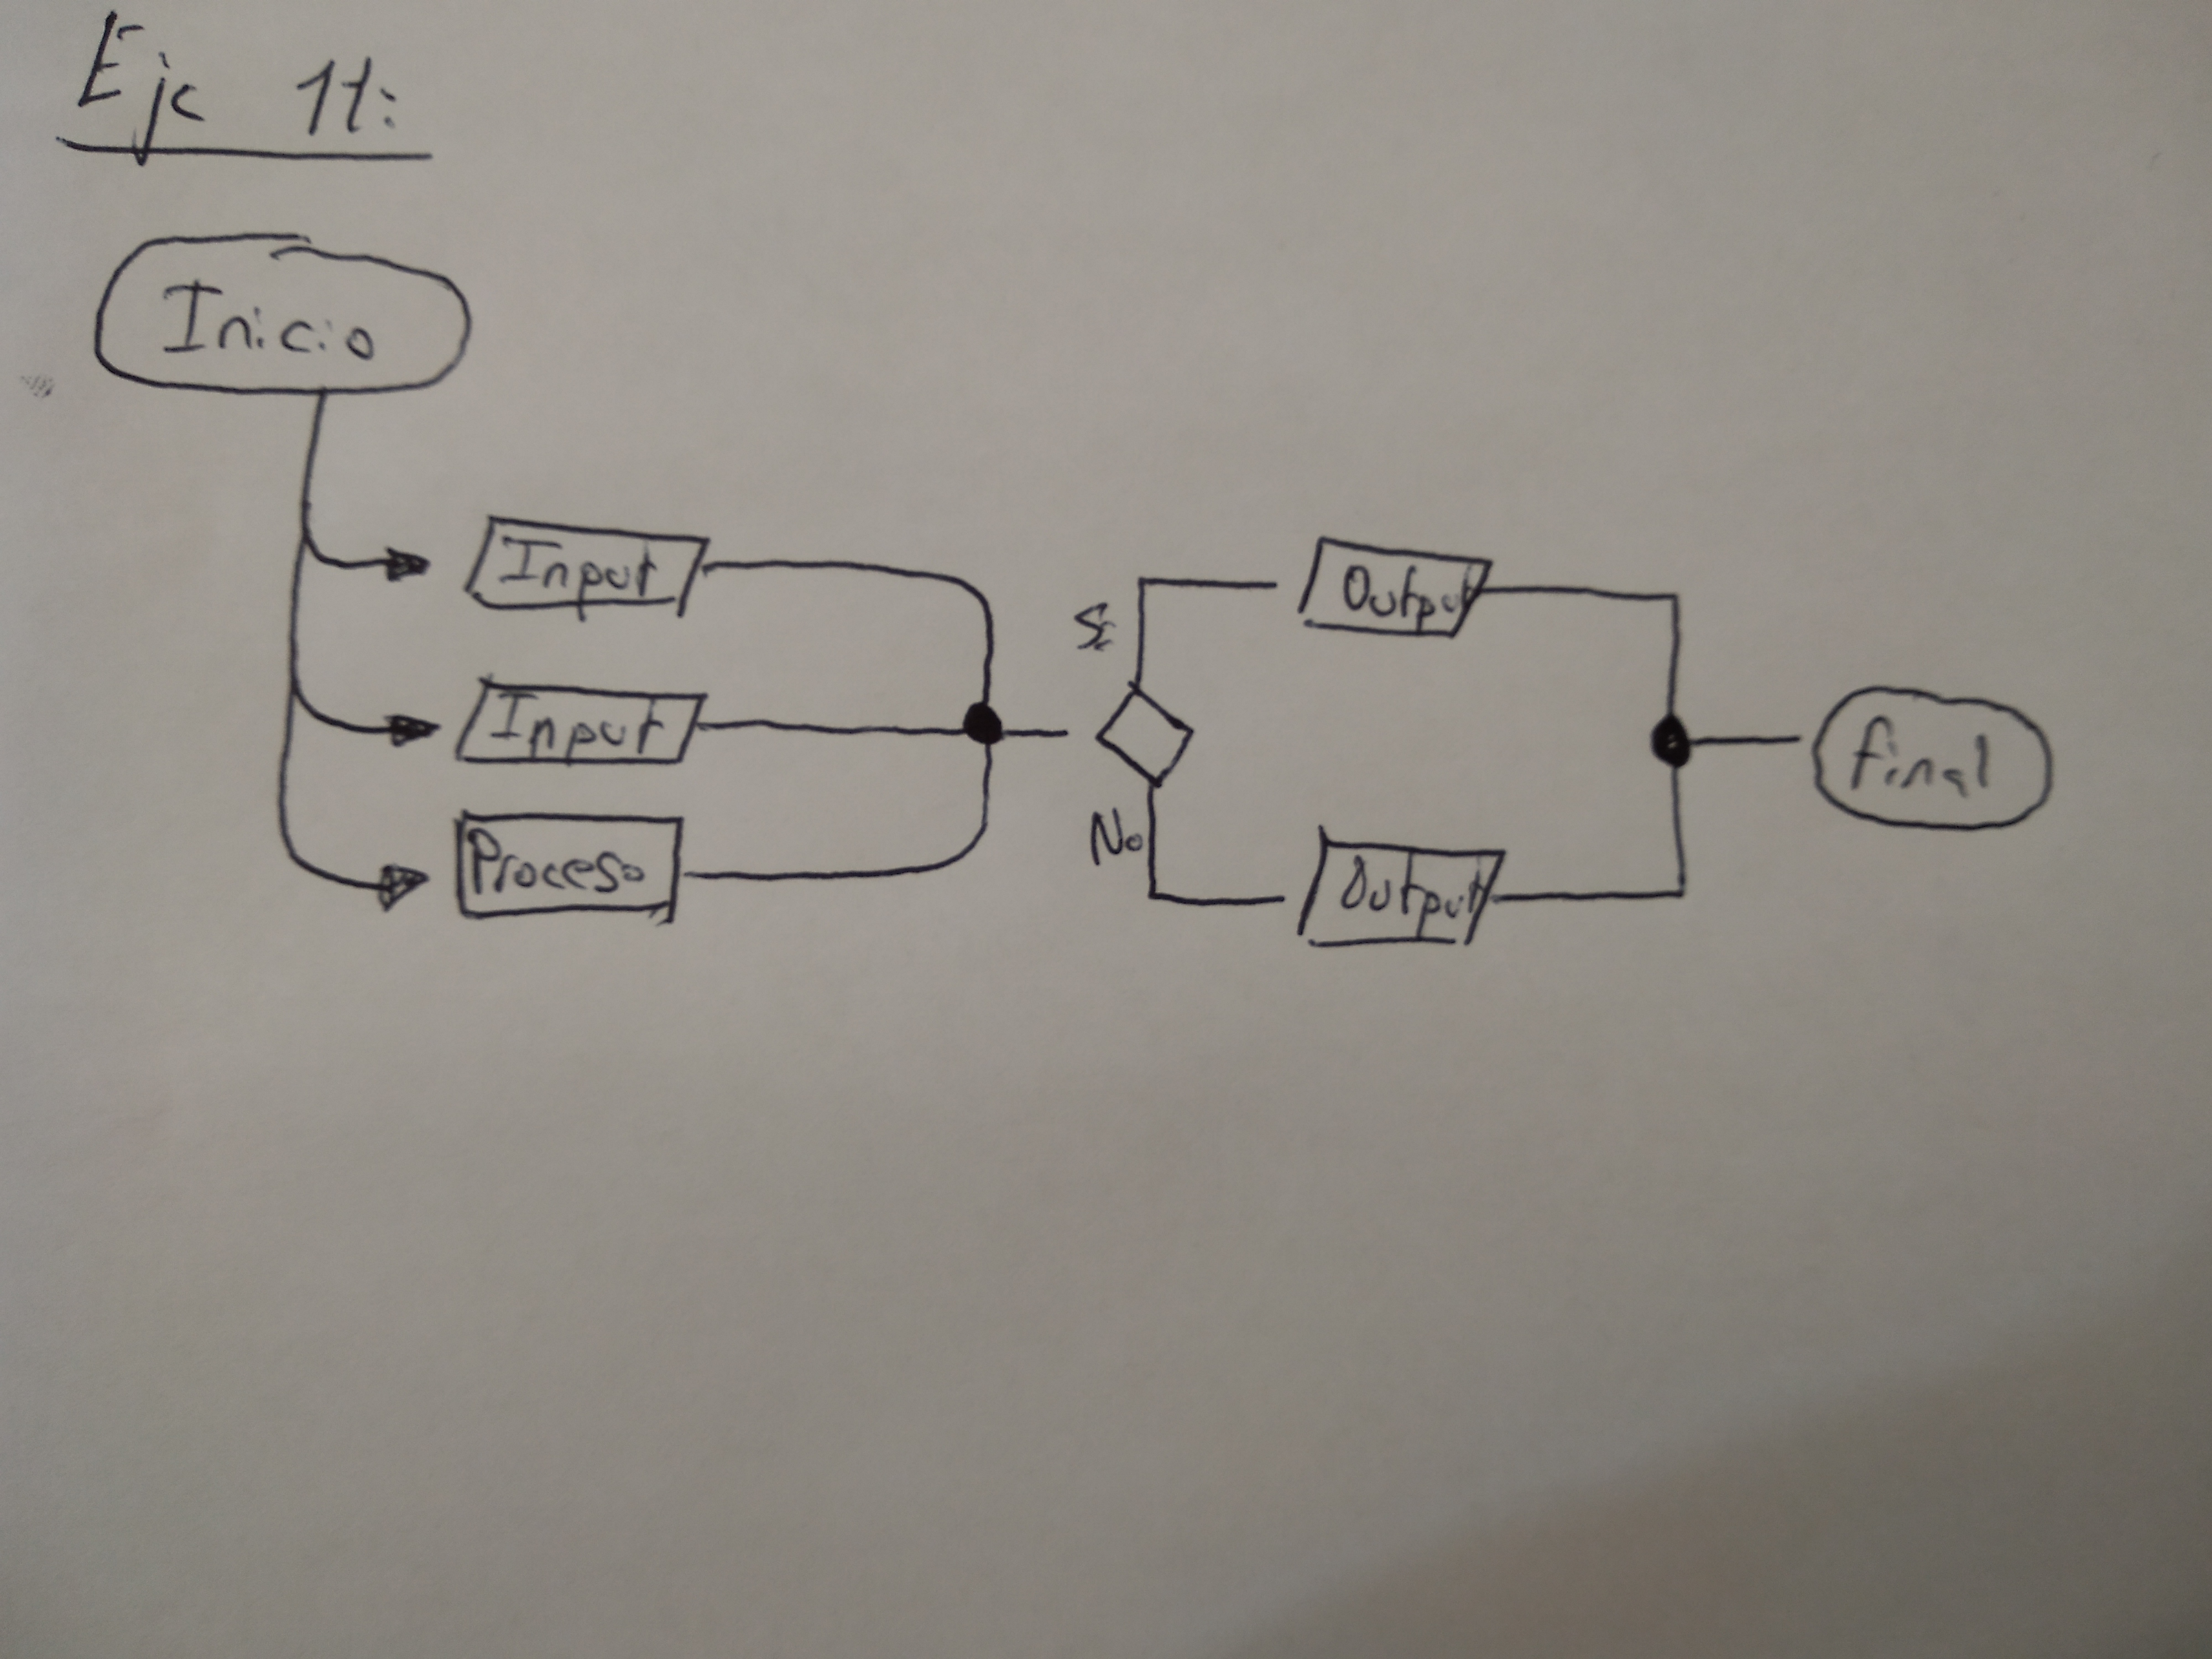 Eje 11:
Inicio
Input
Input
Proceso
Si
No
Output
Output
final